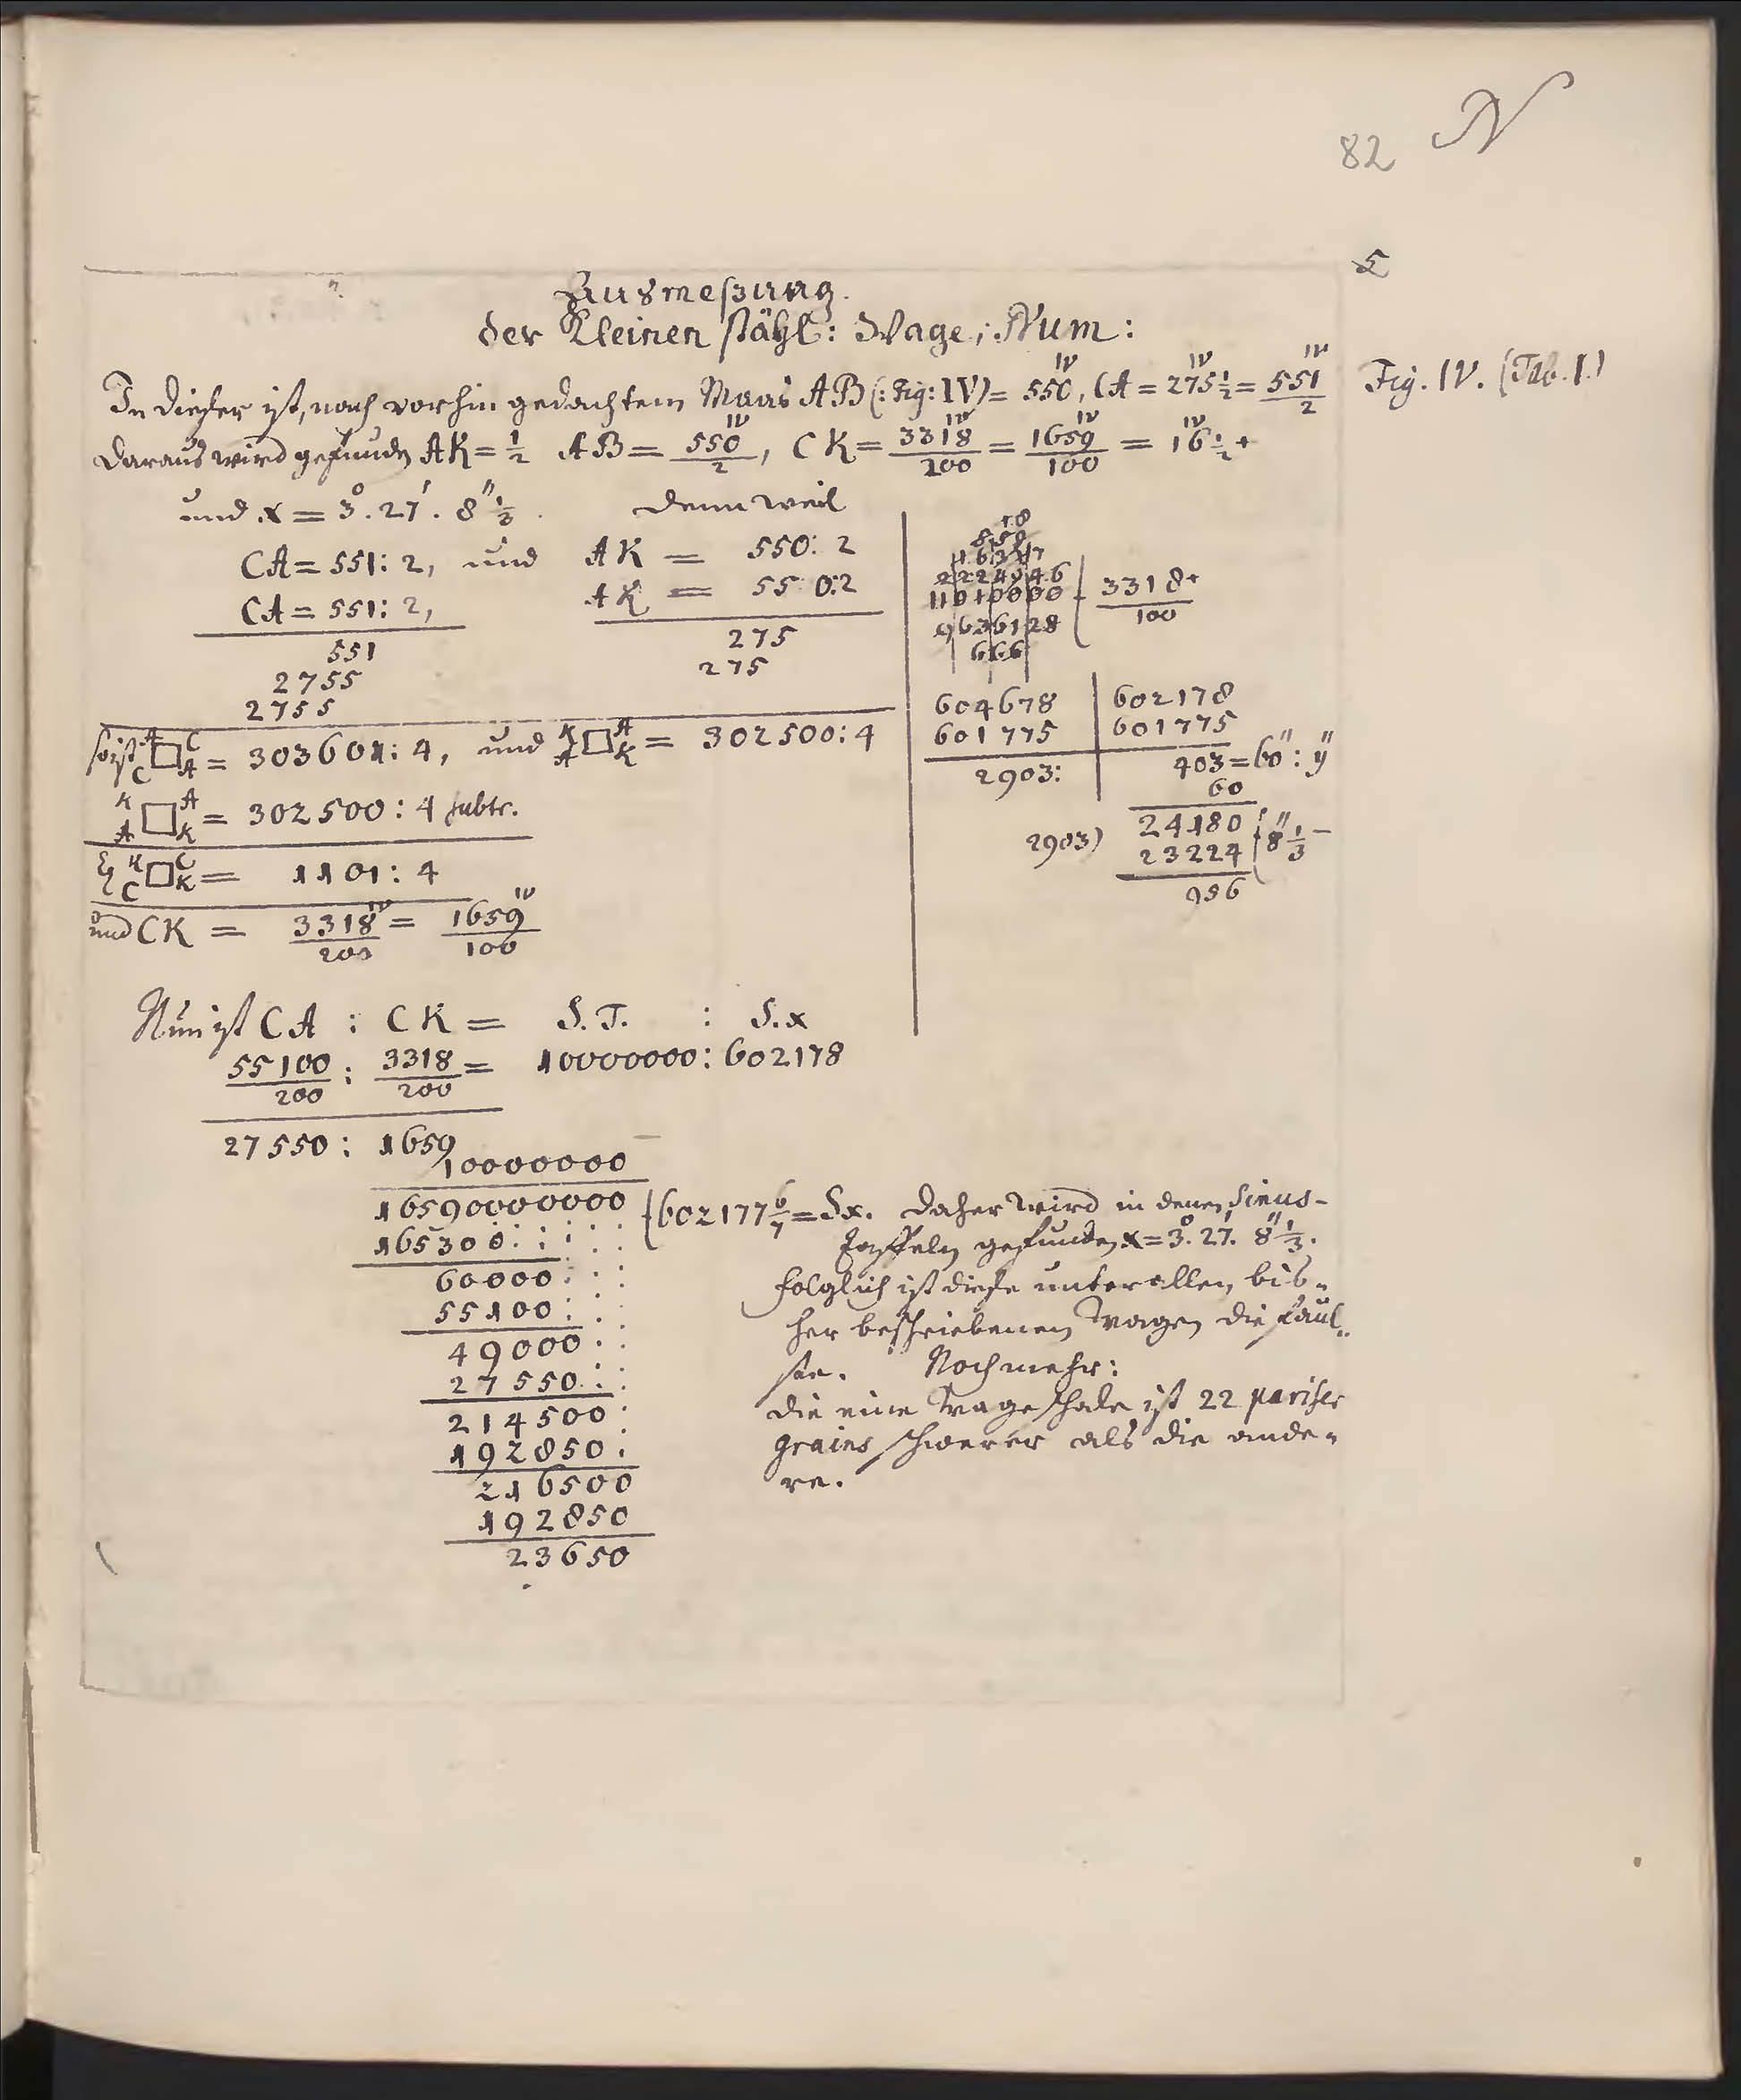 82 N
5
Ausmeßung.
der Kleinen stähl: Wage; Num:
In dieser ist, nach vorhin gedachtem Maas AB (: Fig: IV) = 550^IV, CA = 275 1/2^IV = 551^IV/2 Fig. IV. (Tab. I.)
daraus wird gefunden AK = 1/2 AB = 550^IV/2, CK = 3318^IV/200 = 1659^IV/100 = 16 1/2^IV +
und x = 3°. 27'. 8" 1/3. denn weil
CA = 551: 2, und AK = 550: 2
CA = 551: 2, AK = 550:2
551 275
2755 275
2755
so ist AC□CA = 303601: 4, und KA□AK = 302500: 4
KA□AK = 302500: 4 subtr.
KC□CK = 1101: 4
und CK = 3318^IV/200 = 1659^IV/100
3318+/100
604678 | 602178
601775 | 601775
2903: | 403 = 60": y"
60
2903) 24180 (8" 1/3 −
23224
956
Nun ist CA : CK = S. T. : S. x
55100/200 : 3318/200 = 10000000: 602178
27550: 1659
10000000
16590000000 (602177 6/7 = Sx. Daher wird in denen Sinus-
165300 Taffeln gefunden x = 3°. 27'. 8" 1/3.
60000 folglich ist diese unter allen, bis-
55100 her beschriebenen Wagen die faul-
49000 ste. Noch mehr:
27550 die eine Wageschale ist 22 pariser
214500 grains schwerer als die ande-
192850 re.
216500
192850
23650